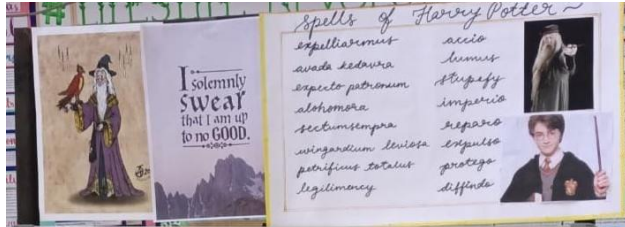 I
solemnly
swear
that I am up
to no GOOD.
Spells of Harry Potter ~
expelliarmus
avada kedavra
expecto patronum
alohomora
sectumsempra
wingardium leviosa
petrificus totalus
legilimency
accio
lumus
stupefy
imperio
reparo
expulso
protego
diffindo